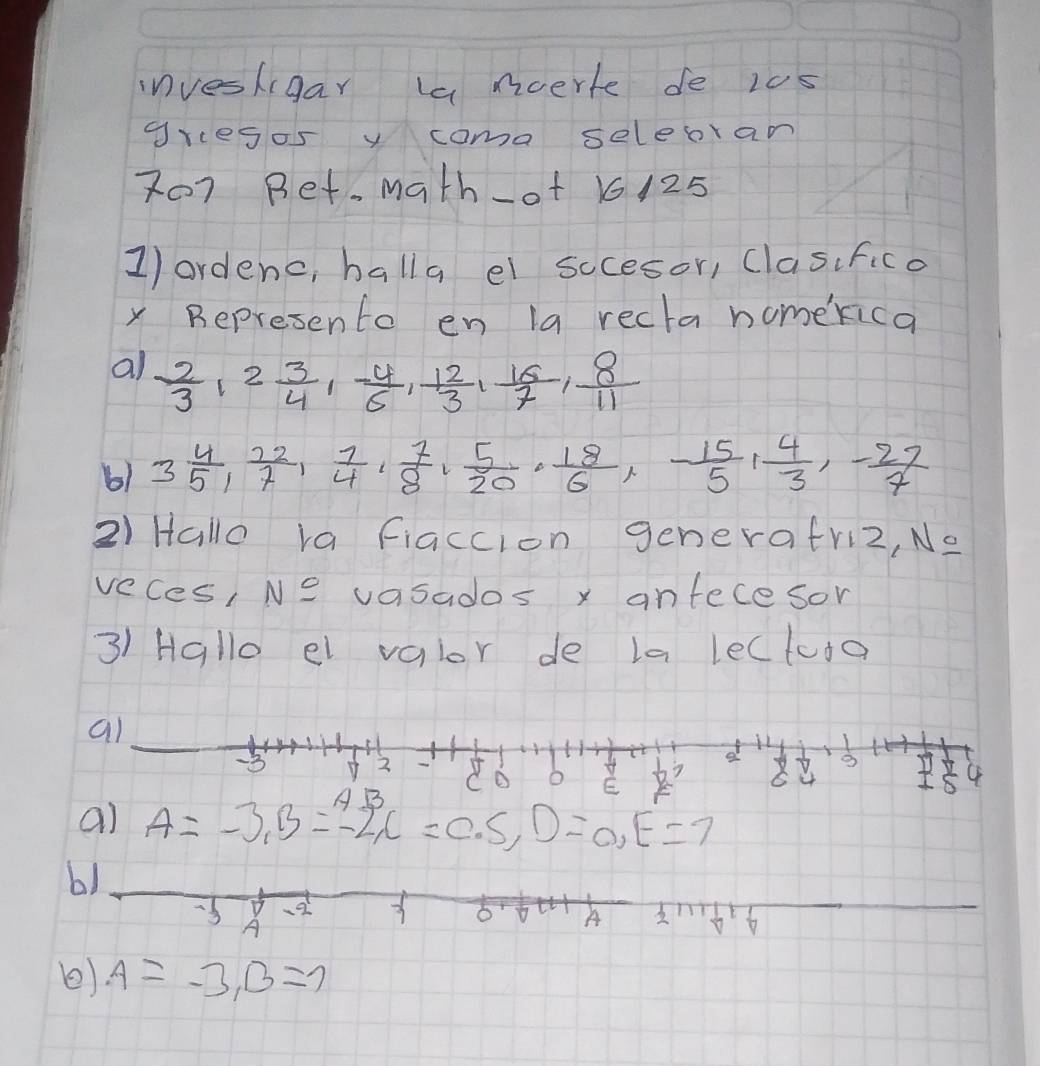 investigar la muerte de los
griegos y como selebran
707 Ret. Math - ot 16/25
1) ordeno, halla el sucesor, Clasifico
y Represento en la recta numérica
a) -2/3, 2 3/4, -4/6, 12/3, 16/7, 8/11
b) 3 4/5, 22/7, 7/4, 7/8, 5/20, 18/6, -15/5, 4/3, -22/7
2) Hallo la fraccion generatriz, Nº
veces, Nº vasados y antecesor
3) Hallo el valor de la lectura
a)
-3 2 - 0 0
A B
a) A = -3, B = -2, C = 0.5, D = 0, E = 7
b)
-3 -2
A
b) A = -3, B = 7